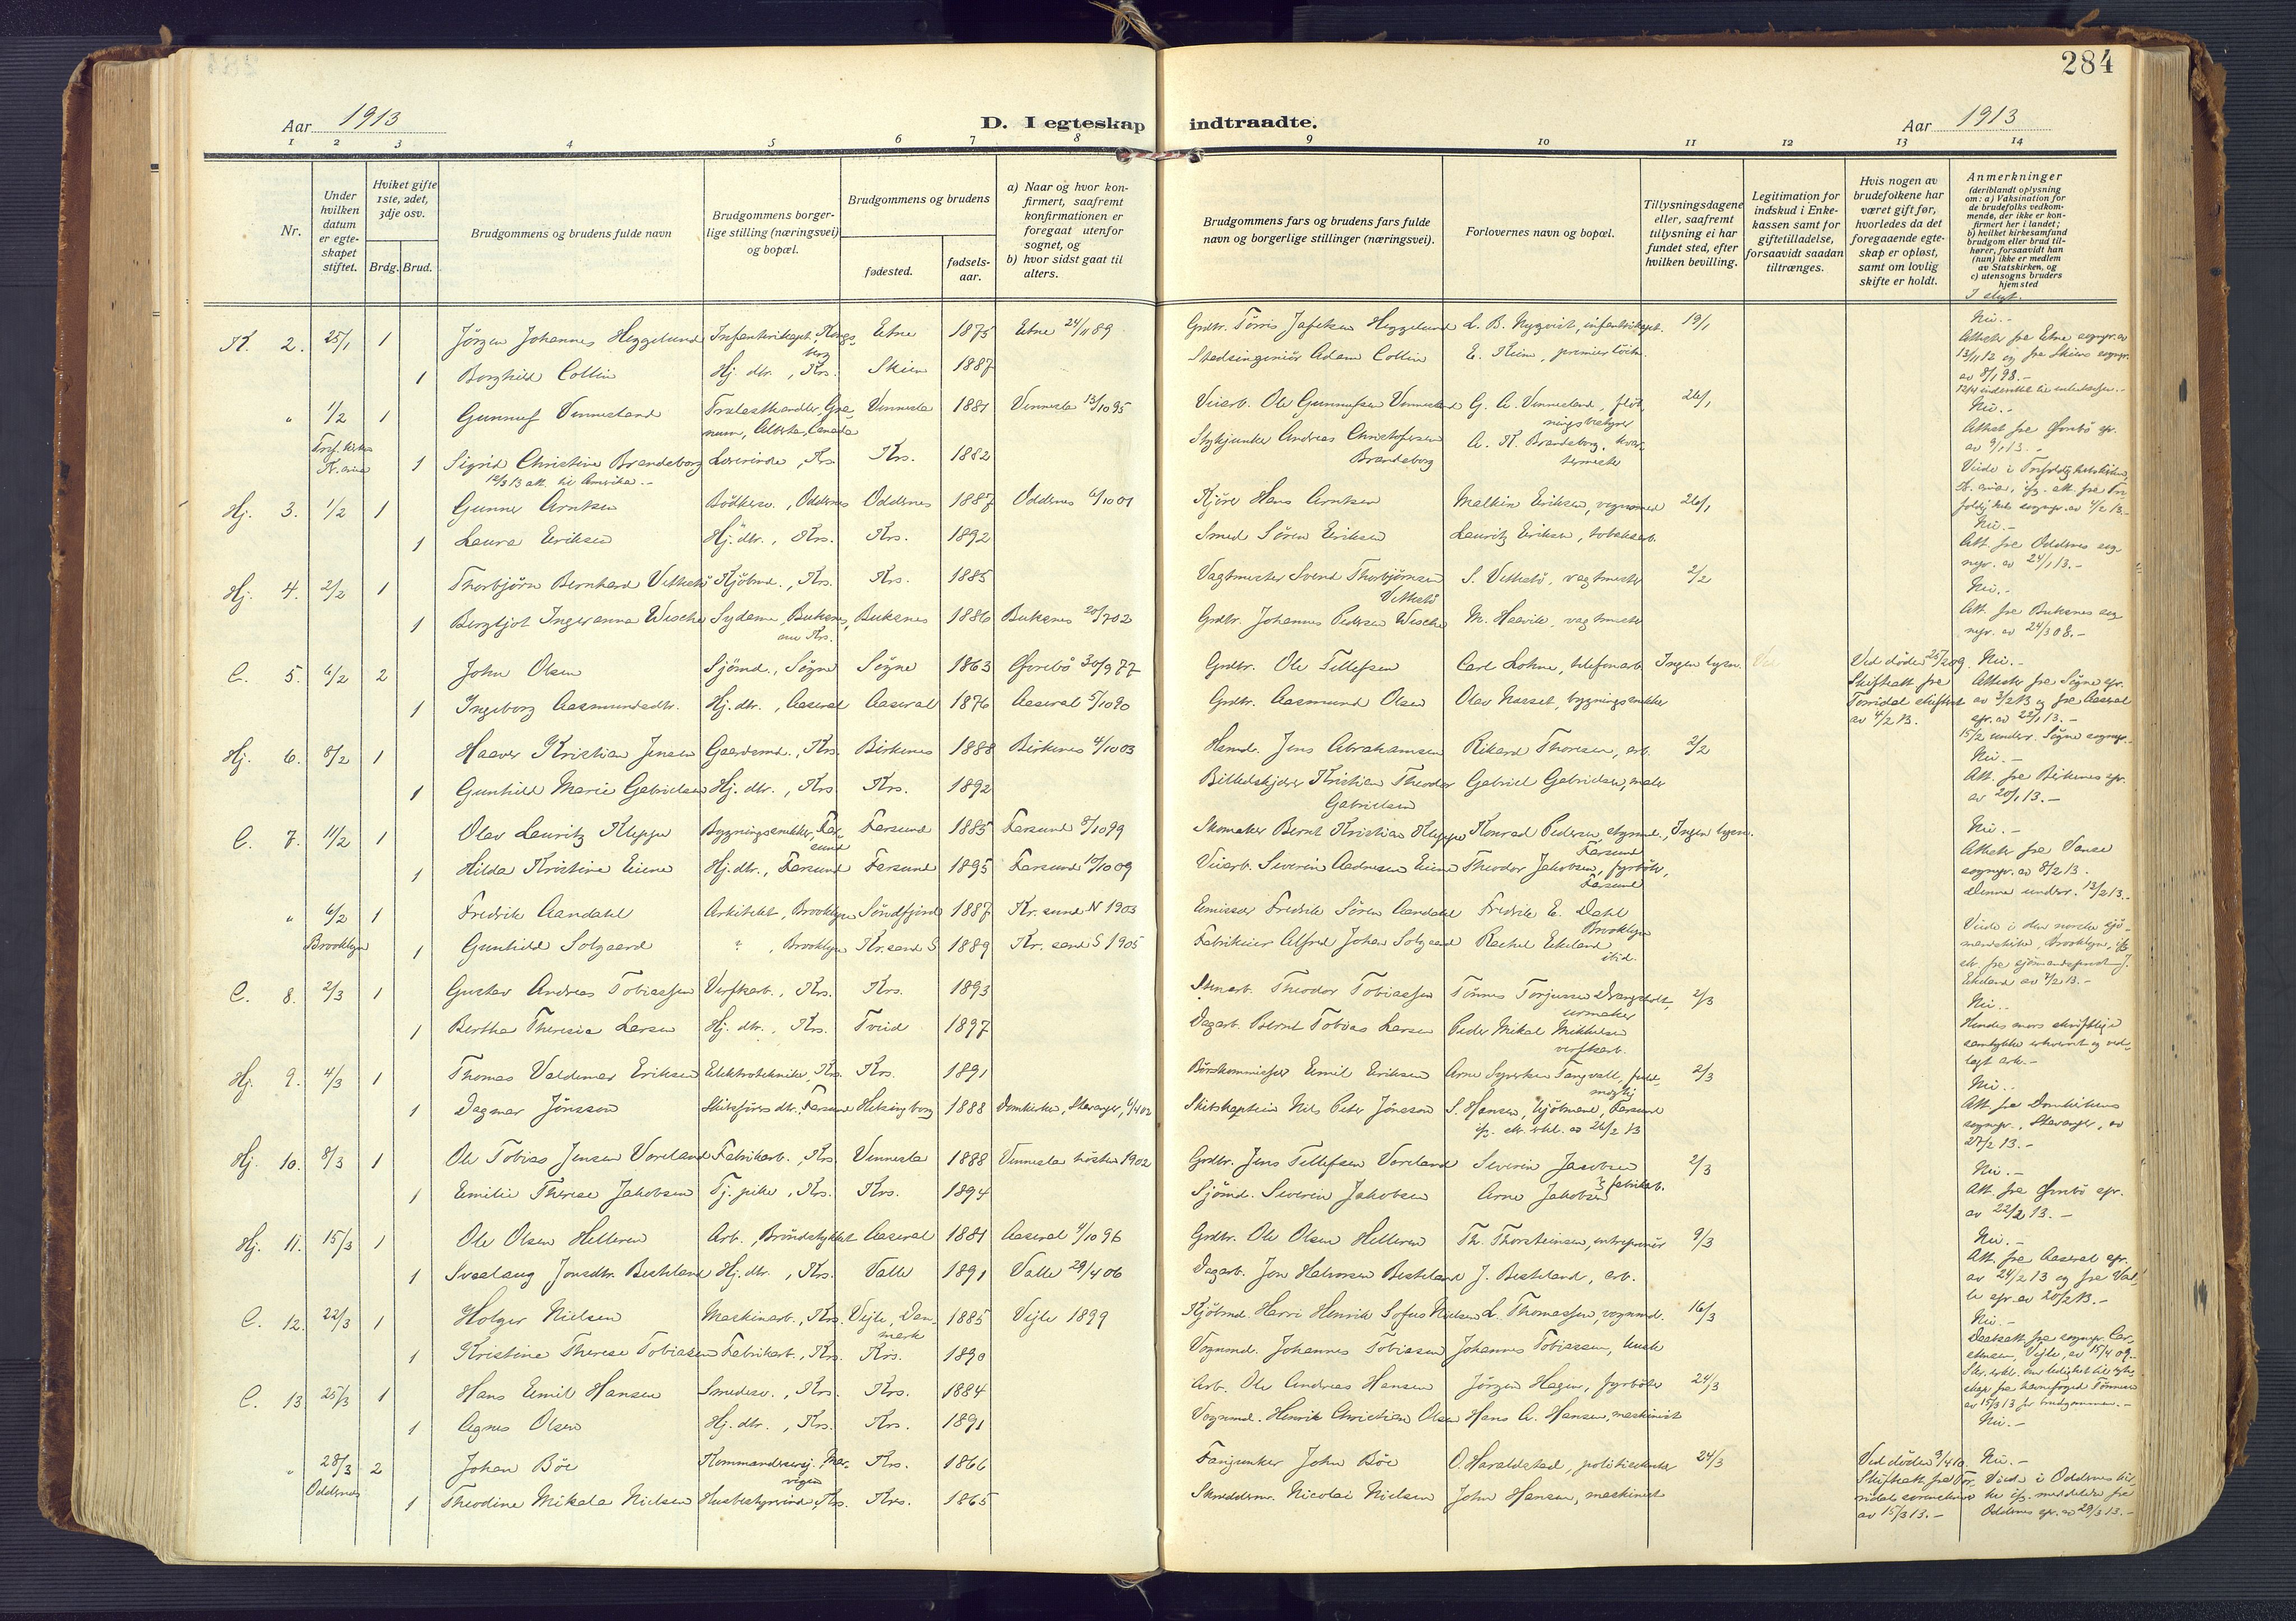 284
Aar 1913
D. I egteskap indtraadte.
Aar 1913
1 2 3 4 5 6 7 8 9 10 11 12 13 14
Nr.
Under hvilken datum er egteskapet stiftet.
Hviket gifte 1ste, 2det, 3dje osv.
Brdg. Brud.
Brudgommens og brudens fulde navn
Brudgommens borgerlige stilling (næringsvei) og bopæl.
Brudgommens og brudens
fødested.
fødselsaar.
a) Naar og hvor konfirmert, saafremt konfirmationen er foregaat utenfor sognet, og
b) hvor sidst gaat til alters.
Brudgommens fars og brudens fars fulde navn og borgerlige stillinger (næringsvei).
Forlovernes navn og bopæl.
Tillysningsdagene eller, saafremt tillysning ei har fundet sted, efter hvilken bevilling.
Legitimation for indskud i Enkekassen samt for giftetilladelse, forsaavidt saadan tiltrænges.
Hvis nogen av brudefolkene har været gift før, hvorledes da det foregaaende egteskap er opløst, samt om lovlig skifte er holdt.
Anmerkninger (deriblandt oplysning om: a) Vaksination for de brudefolks vedkommende, der ikke er konfirmert her i landet; b) hvilket kirkesamfund brudgom eller brud tilhører, forsaavidt han (hun) ikke er medlem av Statskirken, og c) utensogns bruders hjemsted
I slegt.
K. 2. 25/1 1 Jörgen Johannes Heggelund Infanterikapt., Kongsberg Etne 1875 Etne 24/11 89 Grdbr. Tørris Jafetsen Heggelund L. B. Nyqvist, infanterikapt. 19/1 Nei.-
1 Borghild Collin Hj. dtr., Krs. Skien 1887 Stadsingeniör Adam Collin E. Heim, premierlöitn. Attester fra Etne sogнepr. av 13/11 12 og fra Skiens sognepr. av 8/1 98.-
" 1/2 1 Gunnuf Vennesland Trælasthandler, Granum, Alberta, Canada Vennesla 1881 Vennesla 13/10 95 Veiarb. Ole Gunnufsen Vennesland G. A. Vennesland, flötningsbestyrer 26/1 Nei.-
Tref. kirke Kr.ania 1 Sigrid Christine Brandsborg Lærerinde, Krs. Krs. 1882 Stykjunker Andreas Christofersen Brandsborg A. K. Brandsborg, kvartermester
12/3 13 att. til Amerika.-
Hj. 3. 1/2 1 Gunner Arntsen Bödkersv., Oddernes Oddernes 1887 Oddernes 6/10 01 Kjörer Hans Arntsen Malkin Eriksen, vognmand 26/1 Nei.-
1 Laura Eriksen Hj. dtr., Krs. Krs. 1892 Smed Sören Eriksen Lauritz Eriksen, tobaksarb. Att. fra Oddernes sognepr. av 24/1 13.-
Hj. 4. 2/2 1 Thorbjörn Bernhard Vethetö Kjöbmd., Krs. Krs. 1885 Vagtmester Svend Thorbjörnsen Vethetö S. Vethetö, vagtmester 2/2 Nei.-
1 Bergljot Ingeranna Wische Sydame, Buksnes, nu Krs. Buksnes 1886 Buksnes 20/7 02 Grdbr. Johannes Pedersen Wische M. Haavik, vagtmester Att. fra Buksnes sognepr. av 24/3 08.-
C. 5. 6/2 2 John Olsen Sjömd., Sögne Sögne 1863 Øvrebö 30/9 77 Grdbr. Ole Tellefsen Carl Lohne, telefonarb. Ingen lysn. Ved döden 25/2 09. Skifteatt. fra Torridal skifteret av 4/2 13. Nei.-
1 Ingeborg Aasmundsdtr. Hj. dtr., Aaseral Aaseral 1876 Aaseral 5/10 90 Grdbr. Aasmund Olsen Olav Naaset, bygningssnekker Attester fra Sögne spr. av 3/2 13 og fra Aaseral spr. av 22/1 13.-
15/2 underr. Sögne sognepr.-
Hj. 6. 8/2 1 Haaver Kristian Jensen Gaardsmd., Krs. Birkenes 1888 Birkenes 4/10 03 Hsmd. Jens Abrahamsen Rikard Thoresen, arb. 2/2 Nei.-
1 Gunhild Marie Gabrielsen Hj. dtr., Krs. Krs. 1892 Billedskjærer Kristian Theodor Gabrielsen Gabriel Gabrielsen, maler Att. fra Birkenes spr. av 20/1 13.-
C. 7. 11/2 1 Olav Lauritz Kleppe Bygningssnekker, Farsund Farsund 1885 Farsund 8/10 99 Skomaker Bernt Kristian Kleppe Konrad Pedersen, styrmd., Farsund Ingen lysn. Nei.-
1 Hilda Kristine Eiene Hj. dtr., Farsund Farsund 1895 Farsund 10/10 09 Veiarb. Severin Aadnesen Eiene Theodor Jakobsen, fyrböter, Farsund Attester fra Vanse sognepr. av 8/2 13. Denne underr. 13/2 13.-
" 6/2 1 Fredrik Aandahl Arkitekt, Brooklyn Söndfjord 1887 Kr.sund N 1903 Emissær Fredrik Sören Aandahl Fredrik E. Dahl Brooklyn
Brooklyn 1 Gunhild Solgaard ", Brooklyn Kr.sand S 1889 Kr.sand S 1905 Fabrikeier Alfred Johan Solgaard Rachel Ekeland ibid. Viede i den norske sjömandskirke, Brooklyn, ifg. att. fra sjömandsprest J. Ekeland av 7/2 13.-
C. 8. 2/3 1 Gustav Andreas Tobiassen Verftsarb., Krs. Krs. 1893 Stenarb. Theodor Tobiassen Tönnes Torjussen Drangsholt, urmaker 2/3 Nei.-
1 Bertha Theresia Larsen Hj. dtr., Krs. Tveid 1897 Dagarb. Bernt Tobias Larsen Peder Mikal Mikkelsen verftsarb. Hendes mors skriftlige samtykke erhvervet og vedlagt ark.-
Hj. 9. 4/3 1 Thomas Valdemar Eriksen Elektrotekniker, Krs. Krs. 1891 Börskommissær Emil Eriksen Arne Syvertsen Tangvall, fuldmægtig 2/3 Nei.-
1 Dagmar Jönsson Skibsförers dtr. Farsund Helsingborg 1888 Domkirken, Stavanger, 6/4 02 Skibskaptein Nils Peter Jönsson S. Hansen, kjöbmand, Farsund ifg. skr. erkl. av 26/2 13 Att. fra Domkirkens sognepr., Stavanger, av 27/2 13.-
Hj. 10. 8/3 1 Ole Tobias Jensen Voreland Fabrikarb., Krs. Vennesla 1888 Vennesla hösten 1902 Grdbr. Jens Tellefsen Voreland Severin Jacobsen 2/3 Nei.-
1 Emilie Therese Jakobsen Tj. pike, Krs. Krs. 1894 Sjömd. Severin Jakobsen Arne Jakobsen fabrikarb. Att. fra Øvrebö spr. av 22/2 13.-
Hj. 11. 15/3 1 Ole Olsen Helleren Arb., Bröndstykket Aaseral 1881 Aaseral 4/10 96 Grdbr. Ole Olsen Helleren Th. Thorsteinsen, entreprenör 9/3 Nei.-
1 Svaalaug Jonsdtr. Besteland Hj. dtr., Krs. Valle 1891 Valle 29/4 06 Dagarb. Jon Halvorsen Besteland J. Besteland, arb. Att. fra Aaseral spr. av 24/2 13 og fra Valle spr. av 20/2 13.-
C. 12. 22/3 1 Holger Nielsen Maskinarb., Krs. Vejle, Danmark 1885 Vejle 1899 Kjöbmd. Harri Henrik Sofus Nielsen L. Thomassen, vognmd. 16/3 Nei.-
1 Kristine Therese Tobiassen Fabrikarb., Krs. Krs. 1890 Vognmd. Johannes Tobiassen Johannes Tobiassen, kusk Daabsatt. fra sognepr. Carstensen, Vejle, av 15/4 09.-
C. 13 25/3 1 Hans Emil Hansen Smedesv., Krs. Krs. 1884 Arb. Ole Andreas Hansen Jörgen Hagen, fyrböter 24/3
1 Agnes Olsen Hj. dtr., Krs. Krs. 1891 Vognmd. Henrik Christian Olsen Hans A. Hansen, maskinist Nei.-
" 28/3 2 Johan Böe Kommandersergj. Marvigen Krs. 1866 Fanejunker John Böe O. Haraldstad, politibetjent 24/3 Ved döden 9/4 10. Nei.-
Oddernes 1 Theodine Mikala Nielsen Husbestyrerinde, Krs. Krs. 1865 Skrædderm. Nicolai Nielsen John Hansen, maskinist Skifteatt. fra Torridals sorenskriver av 15/3 13.- Viede i Oddernes kirke ifg. meddelelse fra Oddernes spr. av 29/3 13.-